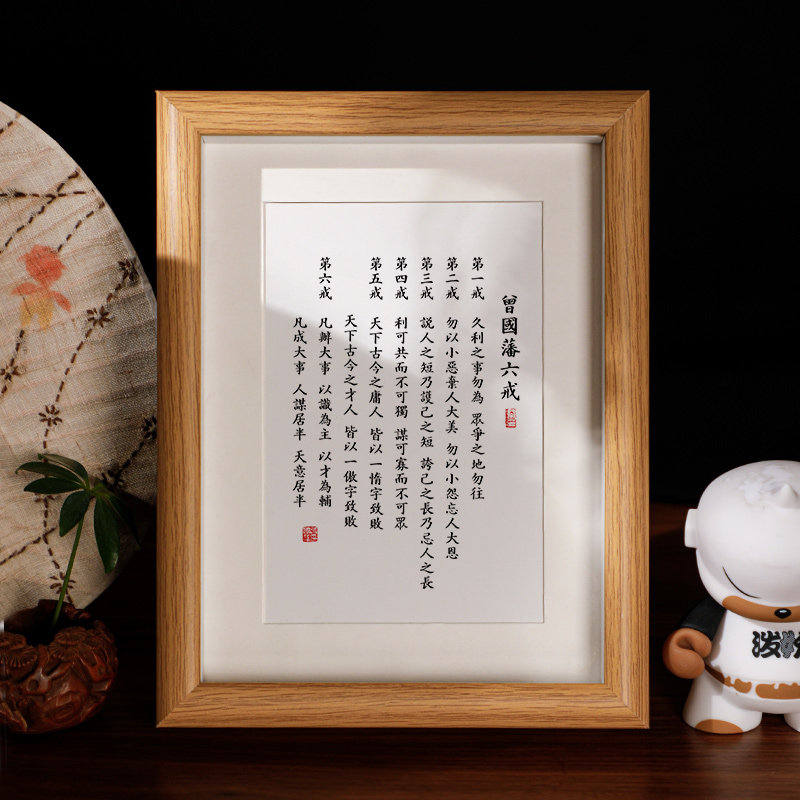 曾國藩六戒
第一戒 久利之事勿為 眾爭之地勿往
第二戒 勿以小惡棄人大美 勿以小怨忘人大恩
第三戒 説人之短乃護己之短 誇己之長乃忌人之長
第四戒 利可共而不可獨 謀可寡而不可眾
第五戒 天下古今之庸人 皆以一惰字致敗
天下古今之才人 皆以一傲字致敗
第六戒 凡辦大事 以識為主 以才為輔
凡成大事 人謀居半 天意居半